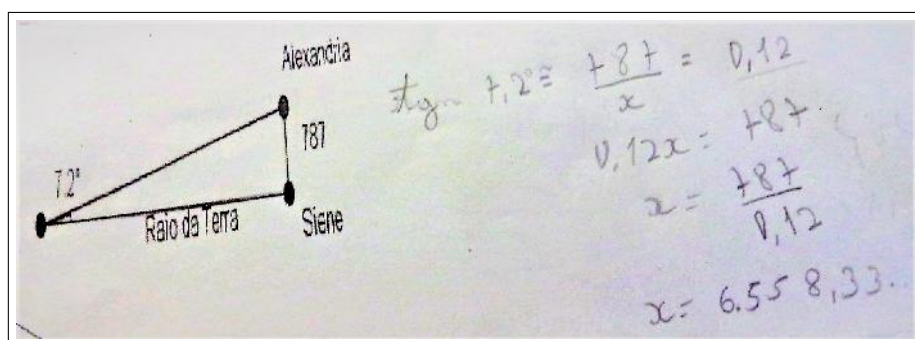 Alexandria
787
7.2°
Raio da Terra
Siene
tg 7,2° = 787/x = 0,12
0,12x = 787
x = 787/0,12
x = 6.558,33.